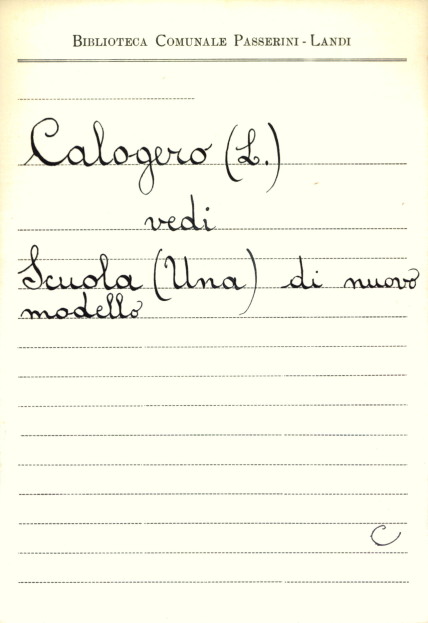 BIBLIOTECA COMUNALE PASSERINI - LANDI
Calogero (L.)
vedi
Scuola (Una) di nuovo
modello
C